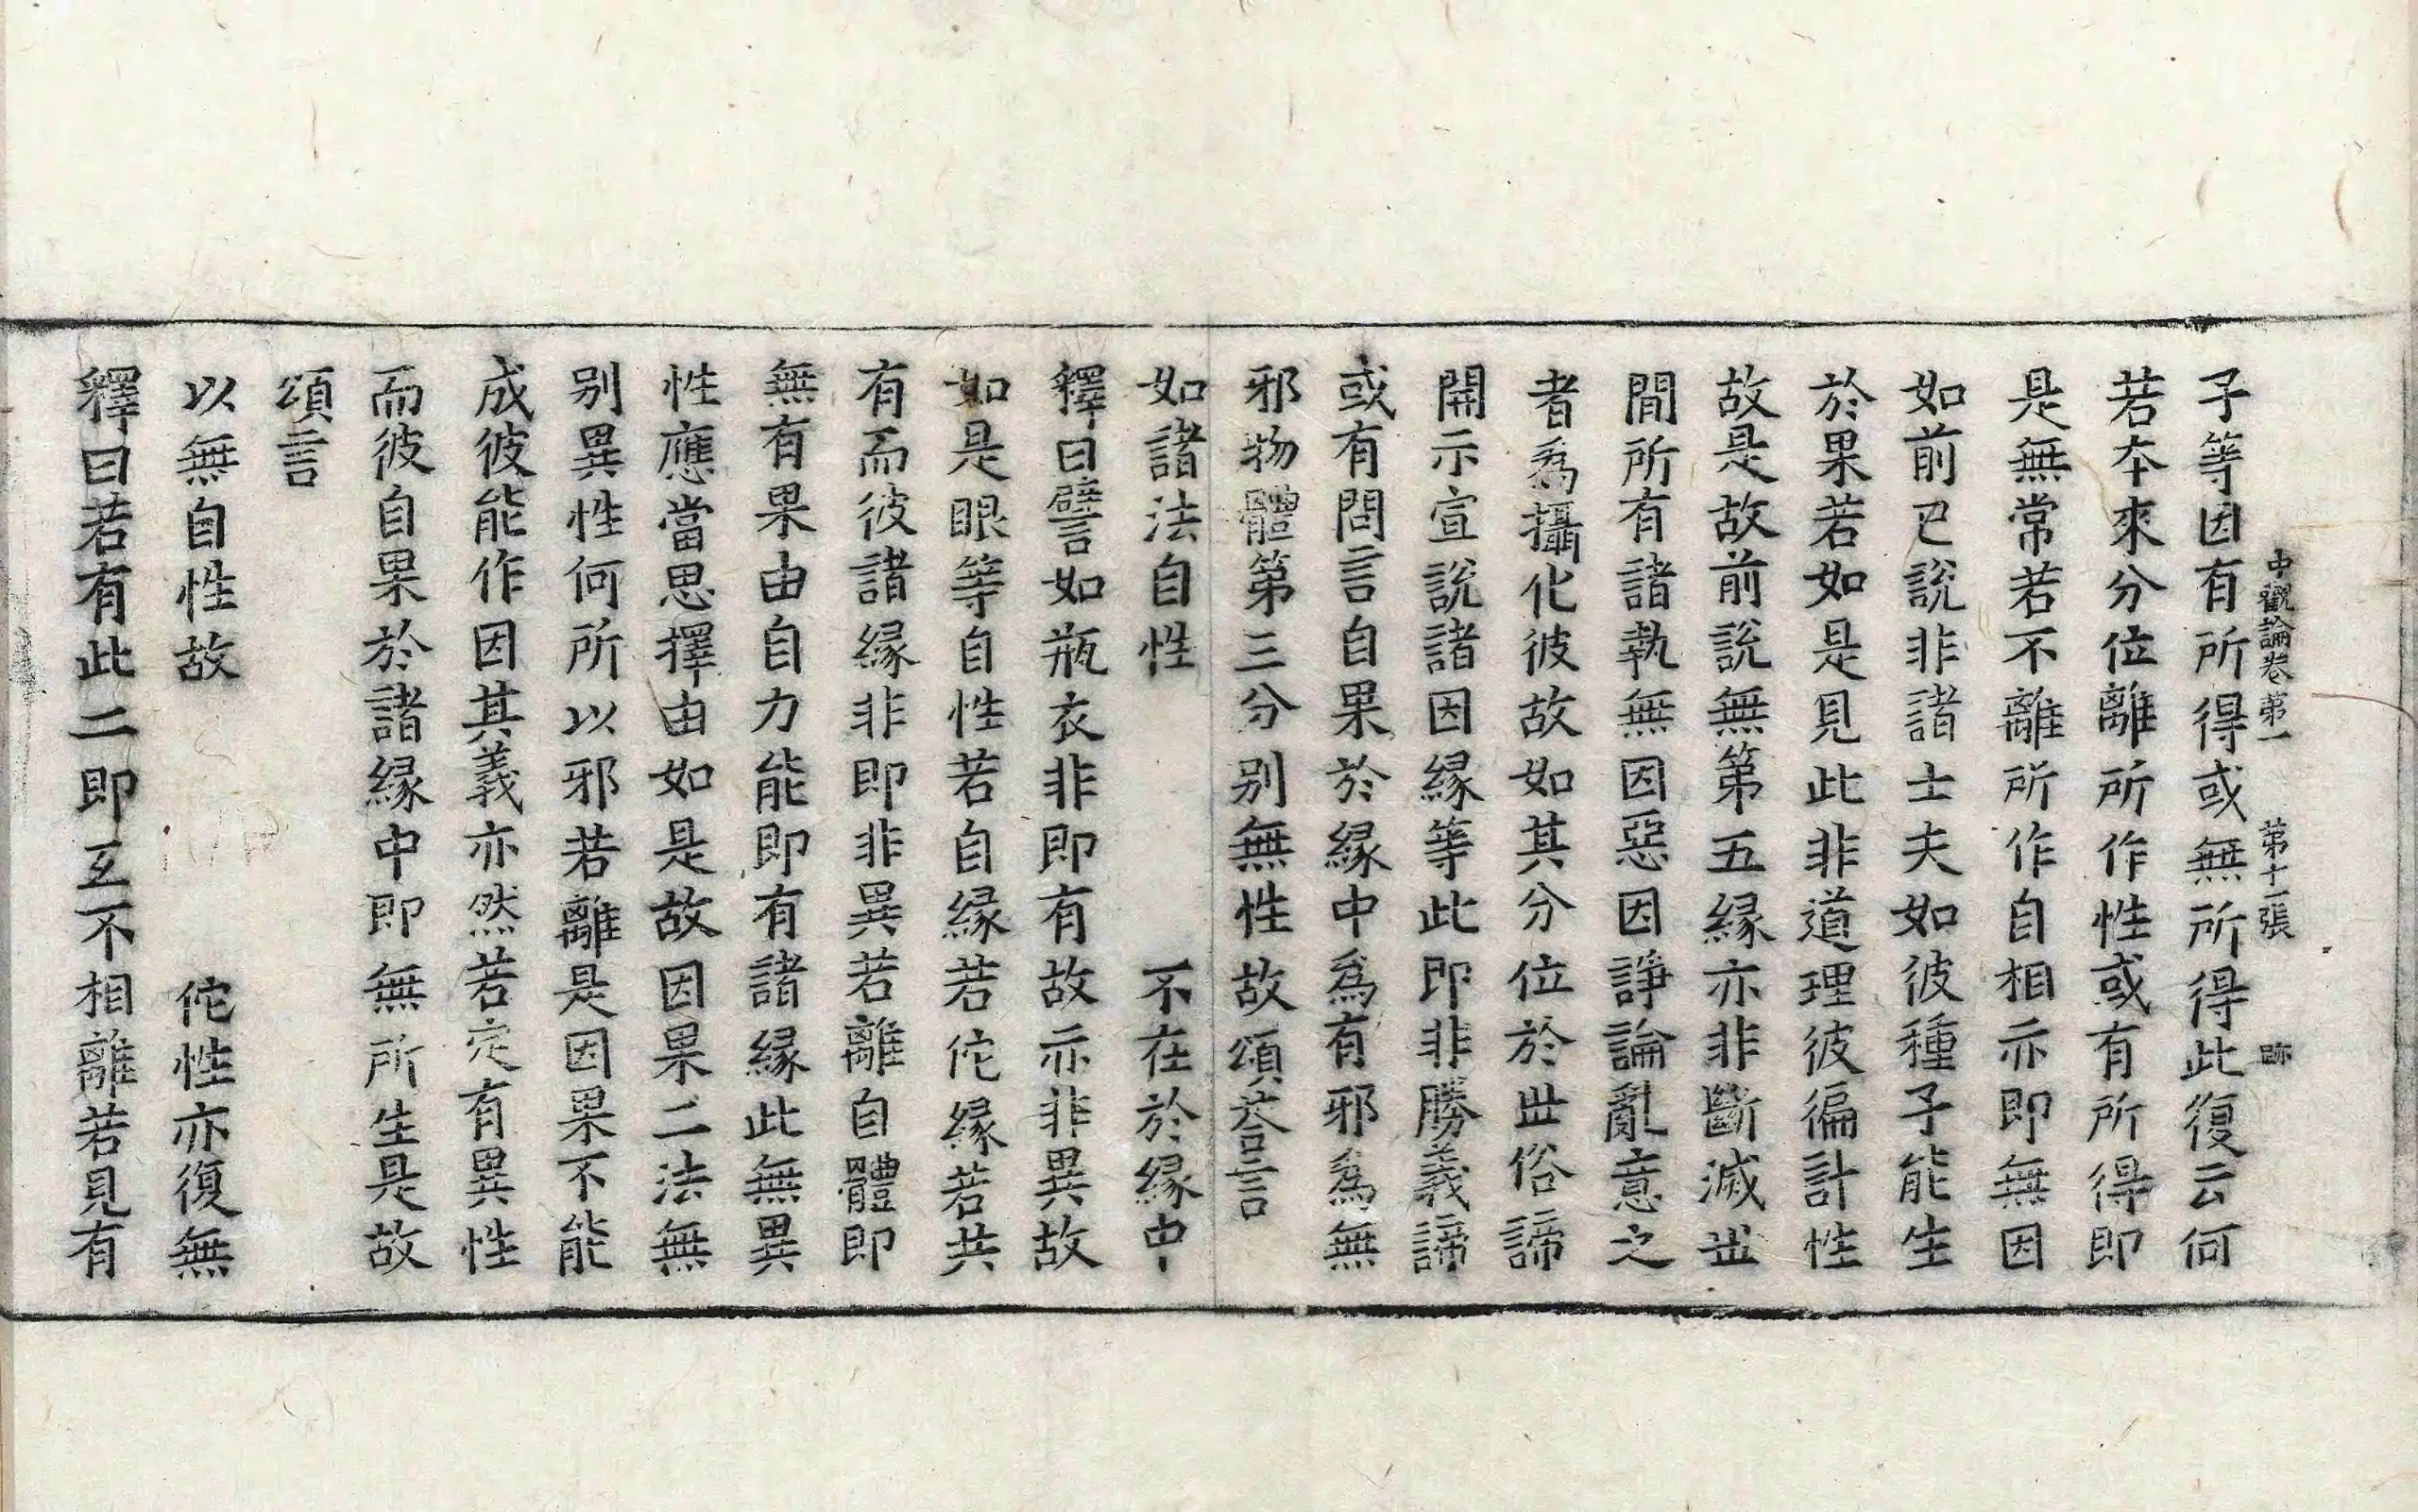 中觀論卷第一　第十一張　跡
子等因有所得或無所得此復云何
若本來分位離所作性或有所得即
是無常若不離所作自相亦即無因
如前已說非諸士夫如彼種子能生
於果若如是見此非道理彼徧計性
故是故前說無第五緣亦非斷滅丗
間所有諸執無因惡因諍論亂意之
者爲攝化彼故如其分位於丗俗諦
開示宣說諸因緣等此即非勝義諦
或有問言自果於緣中爲有邪爲無
邪物體第三分别無性故頌荅言
如諸法自性　不在於緣中
釋曰譬如瓶衣非即有故亦非異故
如是眼等自性若自緣若佗緣若共
有而彼諸緣非即非異若離自體即
無有果由自力能即有諸緣此無異
性應當思擇由如是故因果二法無
别異性何所以邪若離是因果不能
成彼能作因其義亦然若定有異性
而彼自果於諸緣中即無所生是故
頌言
以無自性故　佗性亦復無
釋曰若有此二即互不相離若見有